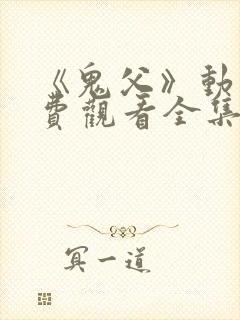 《鬼父》動
費觀看全集
冥一道